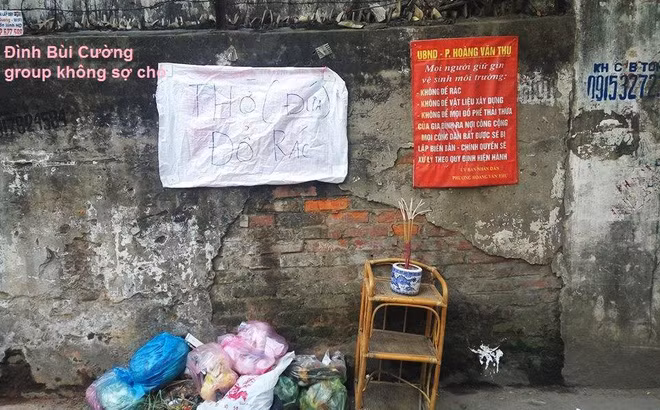 Đình Bùi Cường
group không sợ chó
THỜ (ĐỨA)
ĐỔ RÁC
UBND - P. HOÀNG VĂN THỤ
Mọi người giữ gìn
vệ sinh môi trường:
-KHÔNG ĐỂ RÁC
-KHÔNG ĐỂ VẬT LIỆU XÂY DỰNG
-KHÔNG ĐỂ MỌI ĐỒ PHẾ THẢI THỪA
CỦA GIA ĐÌNH RA NƠI CÔNG CỘNG
MỌI CÔNG DÂN BẮT ĐƯỢC SẼ BỊ
LẬP BIÊN BẢN - CHÍNH QUYỀN SẼ
XỬ LÝ THEO QUY ĐỊNH HIỆN HÀNH
ỦY BAN NHÂN DÂN
PHƯỜNG HOÀNG VĂN THỤ
KH C B TÔ
09153272